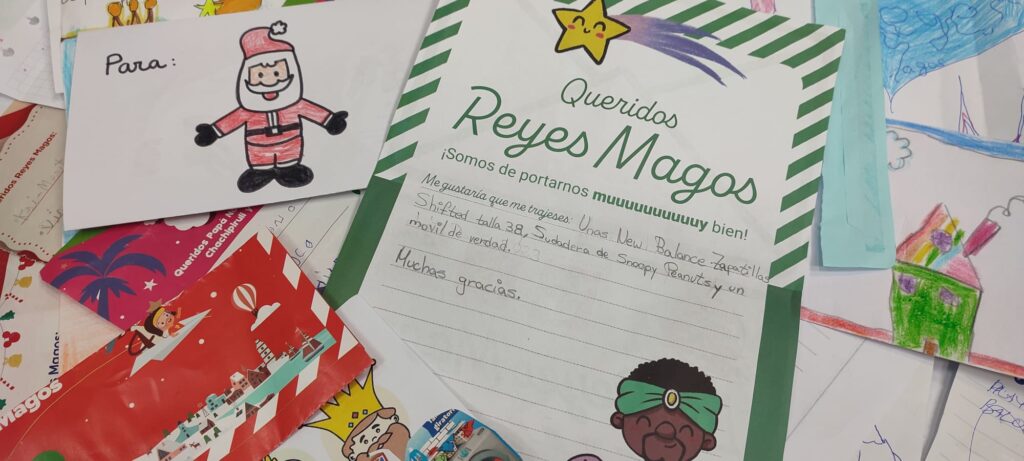 Para:
Queridos
Reyes Magos
¡Somos de portarnos muuuuuuuuuuy bien!
Me gustaría que me trajeses: Unas New Balance Zapatillas
Shifted talla 38, Sudadera de Snoopy Peanuts y un
móvil de verdad.
Muchas gracias.
Queridos Reyes Magos:
Queridos Papá N
Chachipiruli
Magos
Magos: